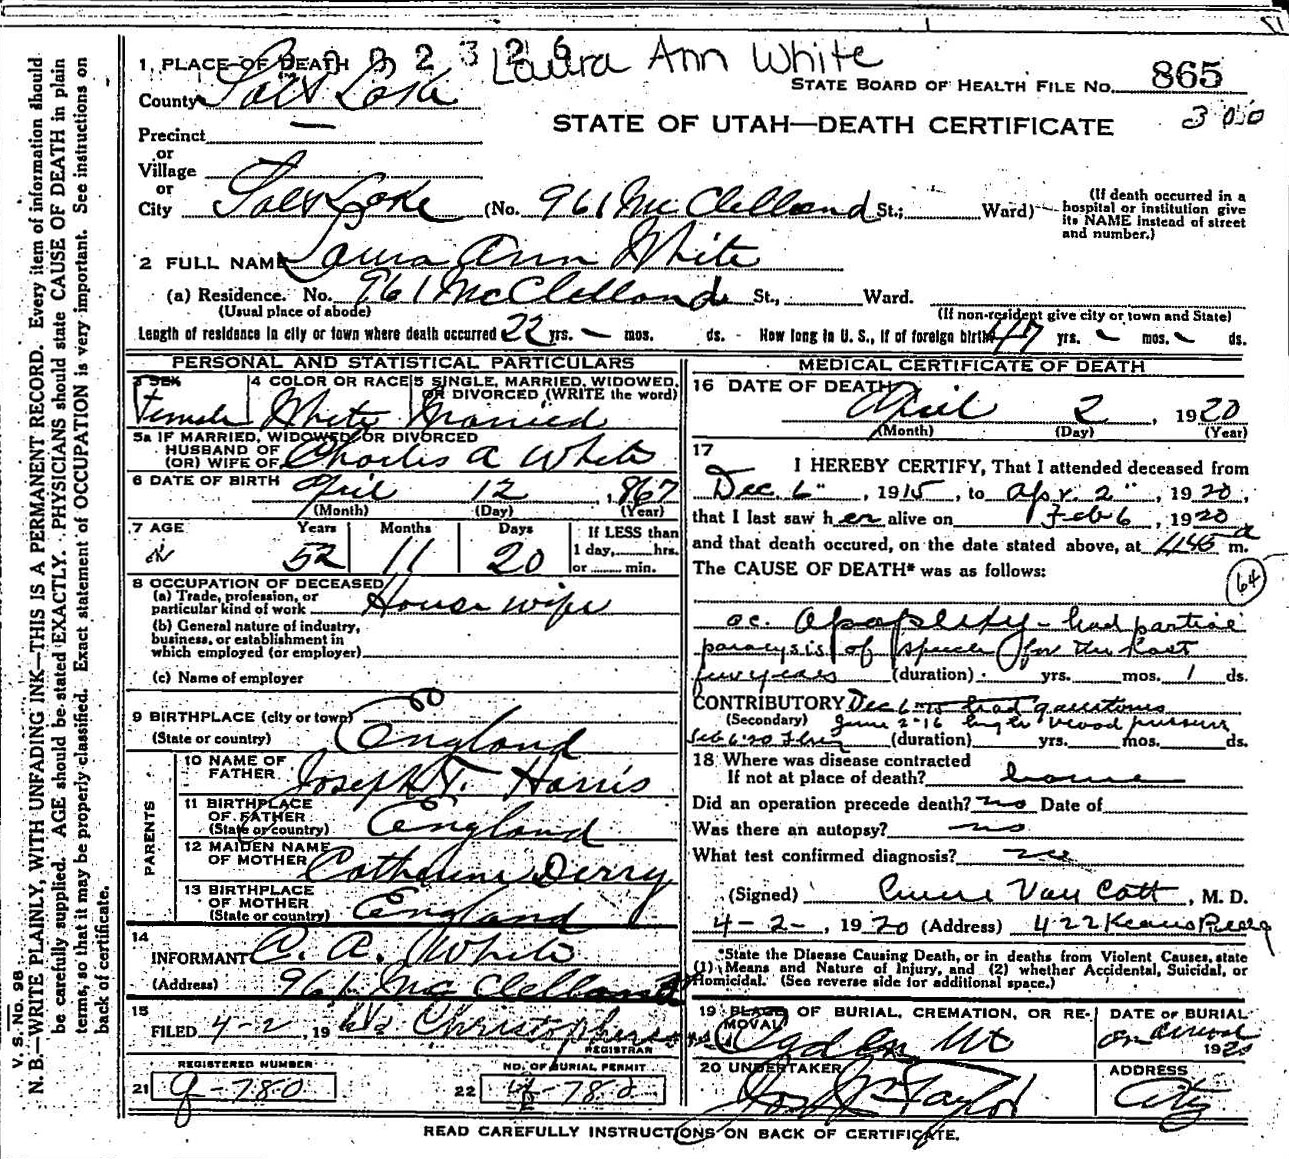 Laura Ann White
1 PLACE OF DEATH
STATE BOARD OF HEALTH FILE No. 865
County Salt Lake
300
STATE OF UTAH—DEATH CERTIFICATE
Precinct
or
Village
or
City Salt Lake (No. 961 McClelland St.; Ward)
(If death occurred in a hospital or institution give its NAME instead of street and number.)
2 FULL NAME Laura Ann White
(a) Residence. No. 961 McClelland St., Ward.
(Usual place of abode) (If non-resident give city or town and State)
Length of residence in city or town where death occurred 22 yrs. — mos. ds. How long in U. S., if of foreign birth 47 yrs. — mos. — ds.
PERSONAL AND STATISTICAL PARTICULARS
3 SEX Female
4 COLOR OR RACE White
5 SINGLE, MARRIED, WIDOWED, OR DIVORCED (WRITE the word) Married
5a IF MARRIED, WIDOWED OR DIVORCED
HUSBAND OF
(OR) WIFE OF Charles A White
6 DATE OF BIRTH April 12, 1867
(Month) (Day) (Year)
7 AGE Years 52 Months 11 Days 20
If LESS than 1 day, hrs. or min.
8 OCCUPATION OF DECEASED
(a) Trade, profession, or particular kind of work House wife
(b) General nature of industry, business, or establishment in which employed (or employer)
(c) Name of employer
9 BIRTHPLACE (city or town)
(State or country) England
PARENTS
10 NAME OF FATHER Joseph T. Harris
11 BIRTHPLACE OF FATHER (State or country) England
12 MAIDEN NAME OF MOTHER Catherine Derry
13 BIRTHPLACE OF MOTHER (State or country) England
14
INFORMANT C. A. White
(Address) 961 McClelland
15
FILED 4-2, 19
REGISTRAR
REGISTERED NUMBER
21 9-780
NO. OF BURIAL PERMIT
22 780
MEDICAL CERTIFICATE OF DEATH
16 DATE OF DEATH April 2, 1920
(Month) (Day) (Year)
17
I HEREBY CERTIFY, That I attended deceased from
Dec. 6", 1915, to Apr. 2", 1920,
that I last saw her alive on Feb 6, 1920
and that death occured, on the date stated above, at 445 a m.
The CAUSE OF DEATH* was as follows:
64
ac. Apoplexy - had partial
paralysis of speech for the last
few years (duration) yrs. mos. 1 ds.
CONTRIBUTORY Dec 6 15 had gallstones
(Secondary) June 2-16 high blood pressure
Feb 6 '20 Flu (duration) yrs. mos. ds.
18 Where was disease contracted
If not at place of death? home
Did an operation precede death? no Date of
Was there an autopsy? no
What test confirmed diagnosis?
(Signed) Van Cott, M. D.
4-2-, 1920 (Address) 422 Kearns Bldg
*State the Disease Causing Death, or in deaths from Violent Causes, state (1) Means and Nature of Injury, and (2) whether Accidental, Suicidal, or Homicidal. (See reverse side for additional space.)
19 PLACE OF BURIAL, CREMATION, OR REMOVAL Ogden Ut
DATE OF BURIAL
on arrival 1920
20 UNDERTAKER Jos Wm Taylor
ADDRESS City
READ CAREFULLY INSTRUCTIONS ON BACK OF CERTIFICATE.
V. S. No. 98
N. B.—WRITE PLAINLY, WITH UNFADING INK—THIS IS A PERMANENT RECORD. Every item of information should
be carefully supplied. AGE should be stated EXACTLY. PHYSICIANS should state CAUSE OF DEATH in plain
terms, so that it may be properly classified. Exact statement of OCCUPATION is very important. See instructions on
back of certificate.